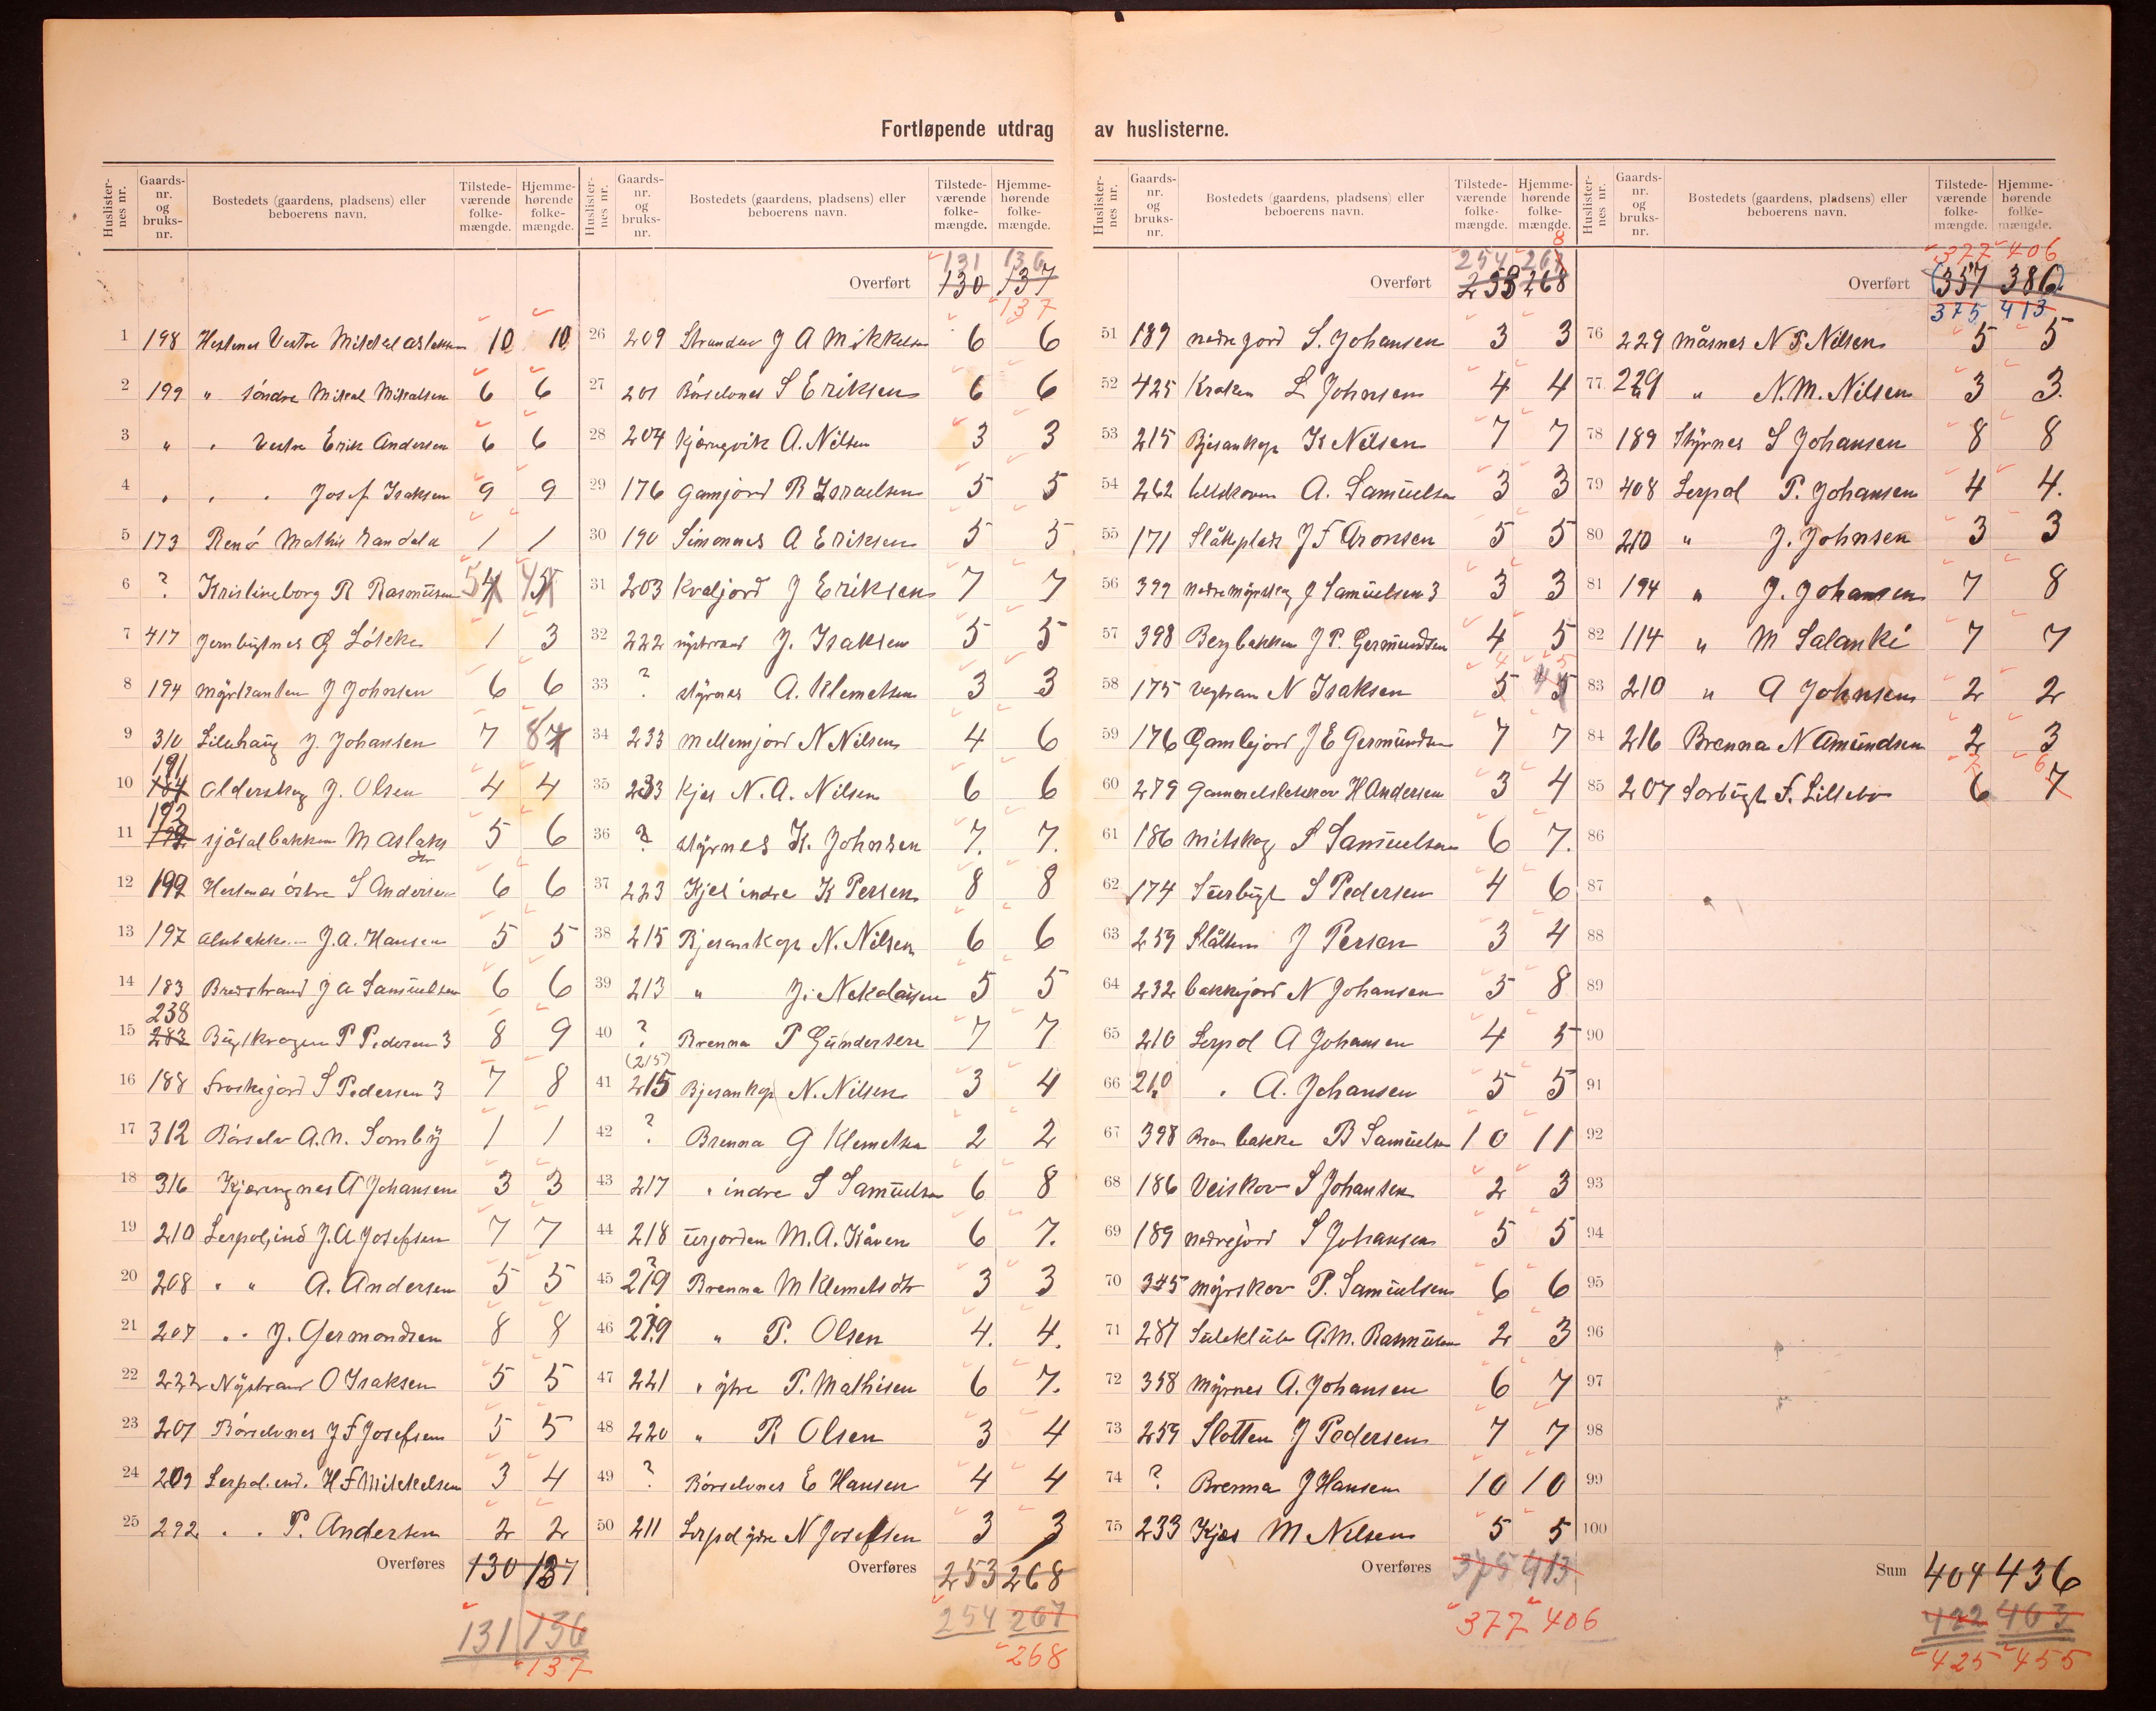 Fortløpende utdrag av huslisterne.
Huslister-nes nr. Gaards-nr. og bruks-nr. Bostedets (gaardens, pladsens) eller beboerens navn. Tilstede-værende folke-mængde. Hjemme-hørende folke-mængde.
1 198 Hestnes Vestre Mikkal Aslaksen 10 10
2 199 " söndre Mikal Mikalsen 6 6
3 " " Vestre Erik Andersen 6 6
4 " " " Josef Isaksen 9 9
5 173 Renö Mathis Randala 1 1
6 ? Kristineborg R Rasmüsen 5 4
7 417 G Löseke 1 3
8 194 Myrkanten J Johnsen 6 6
9 310 Lilehaüg J. Johansen 7 8 7
10 191 184 Alderskog J. Olsen 4 4
11 192 sjödalbakken M Aslaks dtr 5 6
12 199 Hestnes östre S Andersen 6 6
13 197 J. A. Hansen 5 5
14 183 Bredstrand J A Samüelsen 6 6
15 238 283 Bügtkrogen P Pedersen 3 8 9
16 188 Froskejord S Pedersen 3 7 8
17 312 Börselv A. N. Somby 1 1
18 316 Kjæringnes A Johansen 3 3
19 210 Lerpol, ind J. A Josefsen 7 7
20 208 " " A. Andersen 5 5
21 207 " " J. Germondsen 8 8
22 222 Nystrand O Isaksen 5 5
23 201 Börselvnes J F Josefsen 5 5
24 209 Lerpol. ind. H F Mikkelsen 3 4
25 292 " " P. Andersen 2 2
Overføres 130 137
131 136
137
Huslister-nes nr. Gaards-nr. og bruks-nr. Bostedets (gaardens, pladsens) eller beboerens navn. Tilstede-værende folke-mængde. Hjemme-hørende folke-mængde.
131 136
Overført 130 137
137
26 209 Strandav J A Mikkelsen 6 6
27 201 Börselvnes S Eriksen 6 6
28 204 Kjæringvik A. Nilsen 3 3
29 176 Gamjord R Israelsen 5 5
30 190 Simonnes A Eriksen 5 5
31 203 Kvaljord J Eriksen 7 7
32 222 nystrand J. Isaksen 5 5
33 ? styrnes A. Klemetsen 3 3
34 233 Mellemjord N Nilsen 4 6
35 233 Kjæs N. A. Nilsen 6 6
36 ? styrnes K. Johnsen 7. 7.
37 223 Kjes indre K Persen 8 8
38 215 Bjesankop N. Nilsen 6 6
39 213 " J. Nekolaisen 5 5
40 ? Brenna P Gündersen 7 7
41 (215) 215 Bjesankop N. Nilsen 3 4
42 ? Brenna G Klemetsen 2 2
43 217 " indre S Samüelsen 6 8
44 218 ürjorden M. A. Kåven 6 7.
45 219 Brenna M Klemetsdtr 3 3
46 219 " P. Olsen 4. 4.
47 221 " ytre P. Mathisen 6 7.
48 220 " R Olsen 3 4
49 ? Börselvnes E Hansen 4 4
50 211 Lerpol ytre N Josefsen 3 3
Overføres 253 268
254 267
268
Huslister-nes nr. Gaards-nr. og bruks-nr. Bostedets (gaardens, pladsens) eller beboerens navn. Tilstede-værende folke-mængde. Hjemme-hørende folke-mængde.
8
254 267
Overført 253 268
51 189 nedregord S. Johansen 3 3
52 425 Kroken L Johnsen 4 4
53 215 Bjesankop K Nilsen 7 7
54 262 A. Samüelsen 3 3
55 171 Slåteplads J F Aronsen 5 5
56 399 Nedre myrskog J Samüelsen 3 3 3
57 398 Bergbakken J P. Germundsen 4 5
4 5
58 175 N Isaksen 5 5
59 176 Gambejord J E Germündsen 7 7
60 279 H Andersen 3 4
61 186 Mitskog S Samüelsen 6 7.
62 174 Sürbügt S Pedersen 4 6
63 259 Slåtten J Persen 3 4
64 232 bakkejord N Johansen 5 8
65 210 Lerpol A Johansen 4 5
66 210 " A. Johansen 5 5
67 398 bakke B Samüelsen 10 11
68 186 Veiskov S Johansen 2 3
69 189 nedrejord S Johansen 5 5
70 345 myrskov P. Samüelsen 6 6
71 287 A. M. Rasmüsen 2 3
72 358 Myrnes A. Johansen 6 7
73 259 Slotten J Pedersen 7 7
74 ? Brenna J Hansen 10 10
75 233 Kjæs M Nilsen 5 5
Overføres 375 413
377 406
Huslister-nes nr. Gaards-nr. og bruks-nr. Bostedets (gaardens, pladsens) eller beboerens navn. Tilstede-værende folke-mængde. Hjemme-hørende folke-mængde.
377 406
Overført (357 386)
375 413
76 229 Måsnes N P. Nilsen 5 5
77 229 " N. M. Nilsen 3 3.
78 189 Styrnes S Johansen 8 8
79 408 Lerpol P. Johansen 4 4.
80 210 " J. Johnsen 3 3
81 194 " J. Johansen 7 8
82 114 " M Salanki 7 7
83 210 " A Johnsen 2 2
84 216 Brenna N Amündsen 2 3
7 6
85 207 Sorbügt F. Lillebo 6 7
86
87
88
89
90
91
92
93
94
95
96
97
98
99
100
Sum 404 436
422 463
425 455